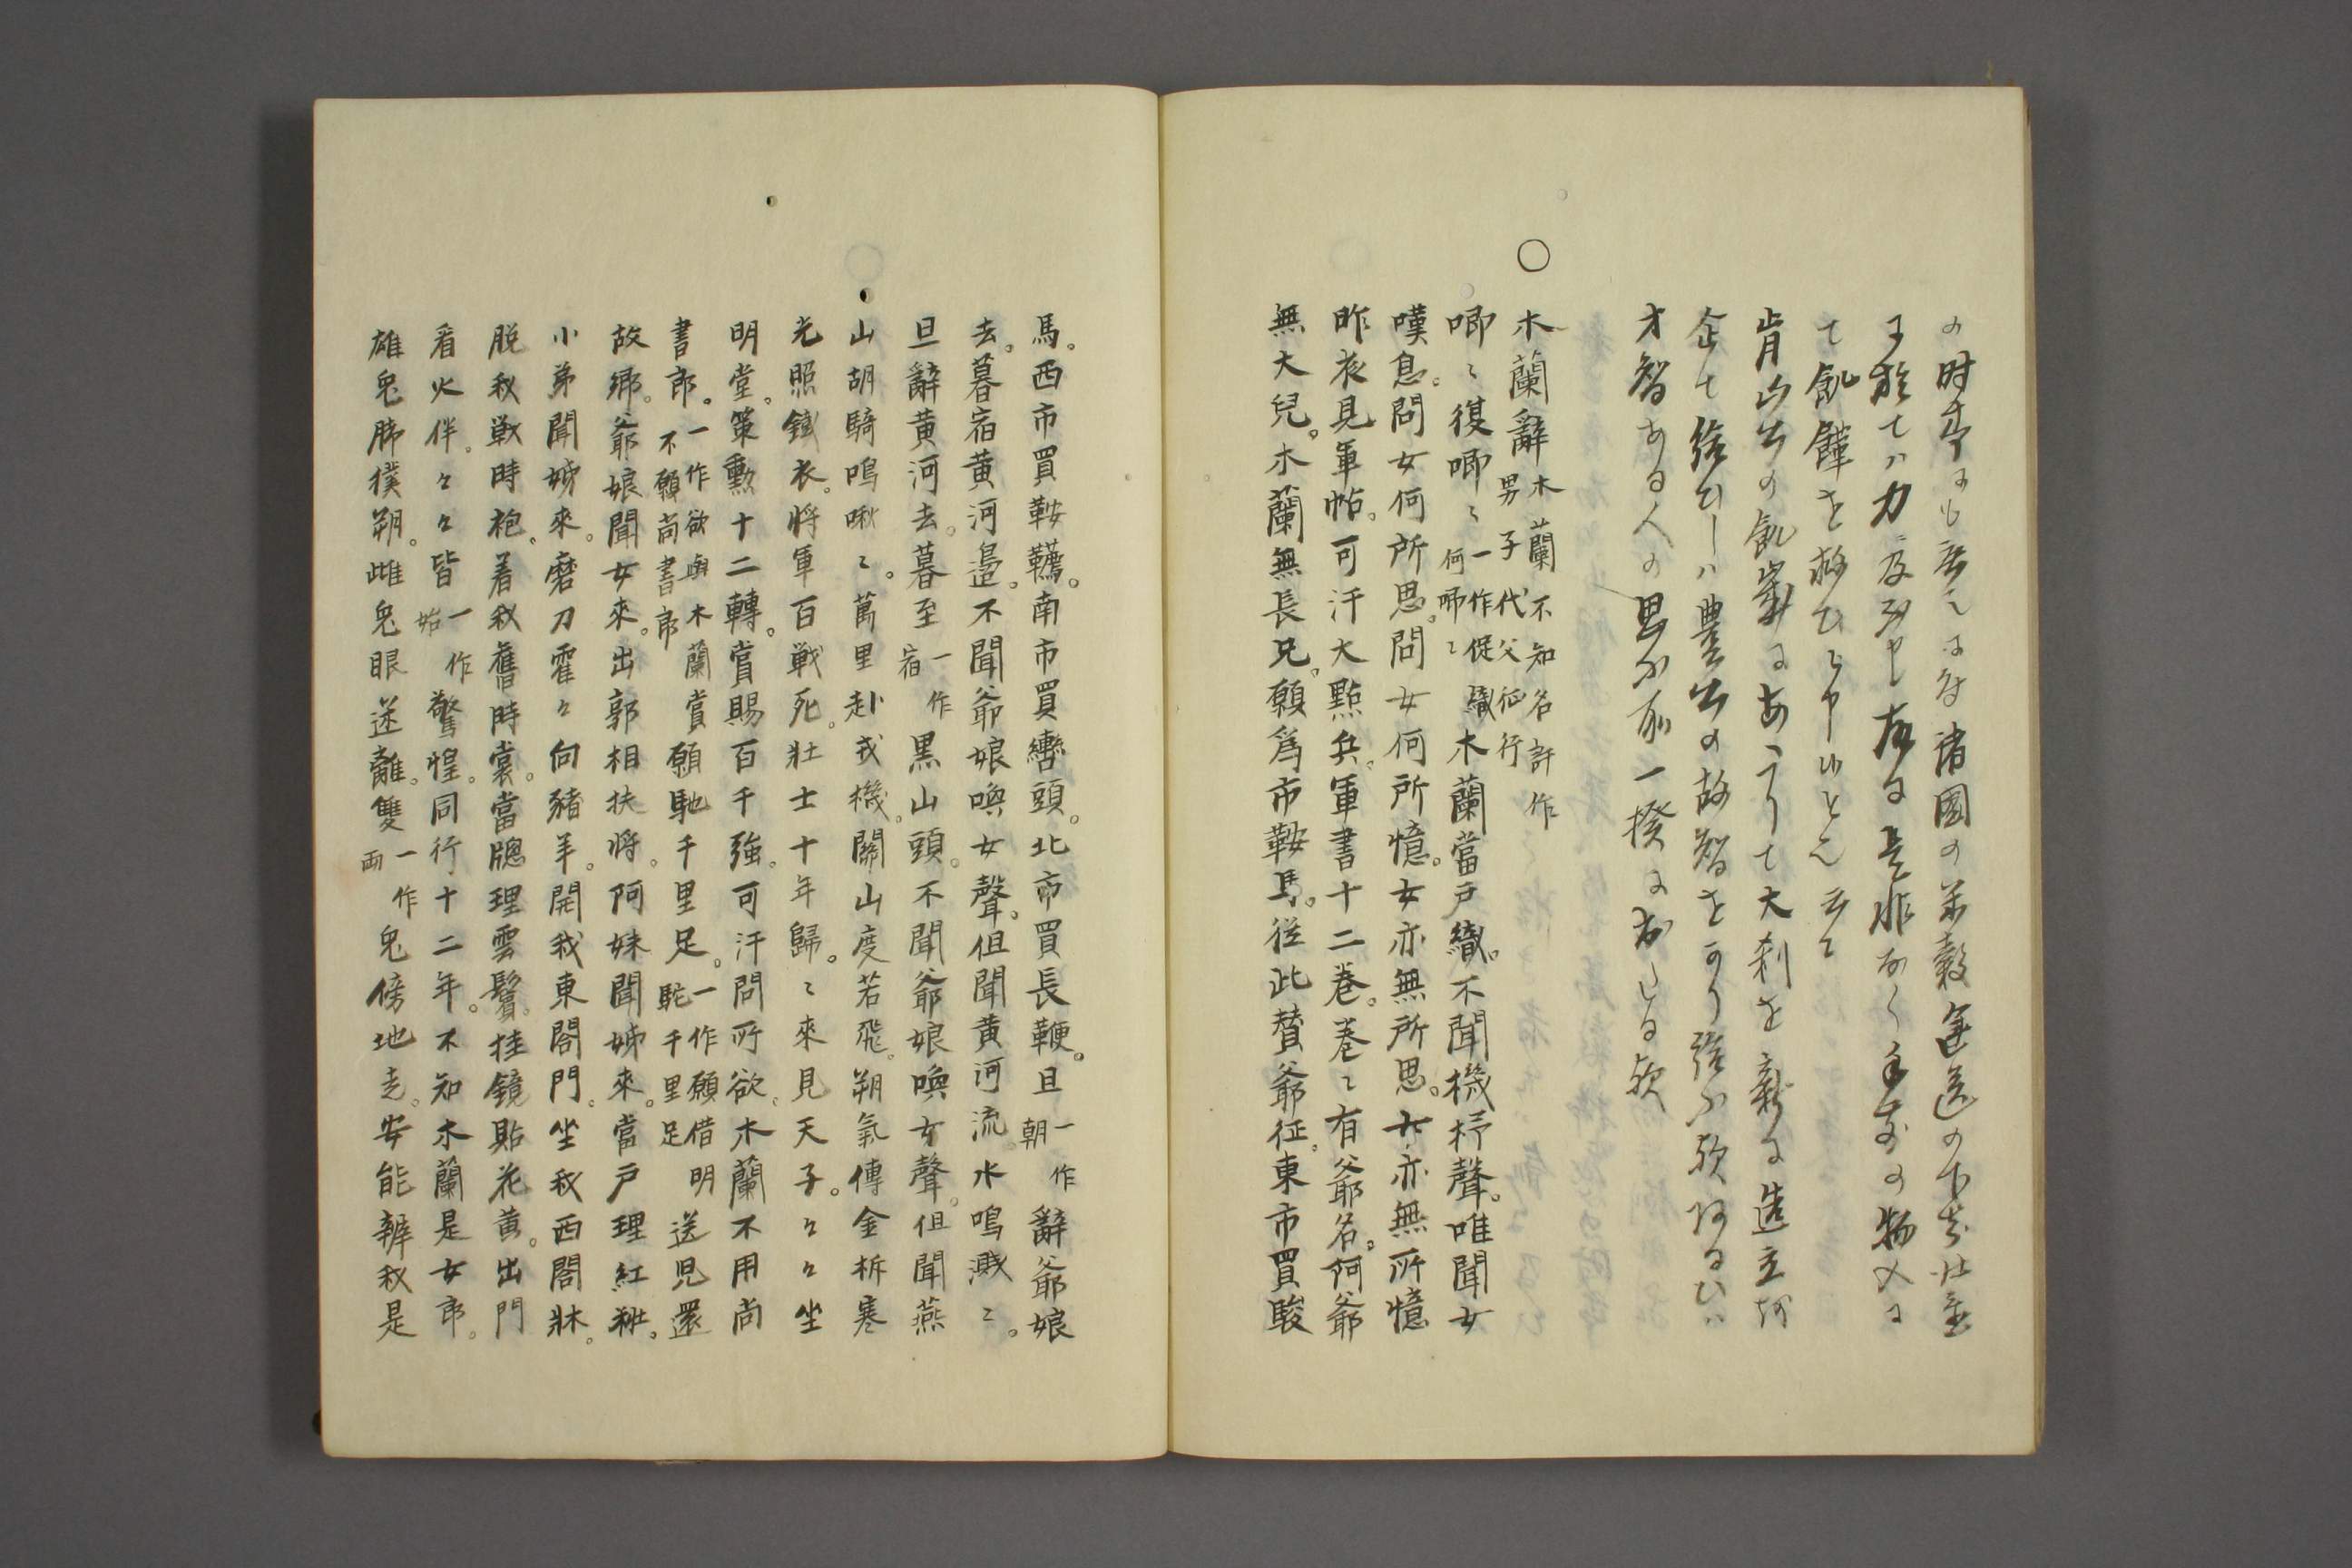 の時節にも 諸國の米穀運送の
に於てハ力及 是非なく 手前の物入に
て飢饉を救ひ
肯山公の飢歳にあたりて大刹を新に造立
企て給ひしハ豊公の故智を
才智ある人の思ふ所一揆に出たる歟
○木蘭辭 木蘭不知名許作男子代父征行
唧〻復唧〻 一作促織何啼〻 木蘭當戸織。不聞機杼聲。唯聞女
嘆息。問女何所思。問女何所憶。女亦無所思。女亦無所憶
昨夜見軍帖。可汗大點兵。軍書十二巻。巻〻有爺名。阿爺
無大兒。木蘭無長兄。願爲市鞍馬。從此賛爺征。東市買駿
馬。西市買鞍韉。南市買轡頭。北市買長鞭。旦 一作朝 辭爺娘
去。暮宿黄河邉。不聞爺娘喚女聲。但聞黄河流水鳴濺〻。
旦辭黄河去。暮至 一作宿 黒山頭。不聞爺娘喚女聲。但聞燕
山胡騎鳴啾〻。萬里赴戎機。關山度若飛。朔氣傳金柝寒
光照鐵衣。将軍百戦死。壮士十年歸。〻來見天子。々々坐
明堂。策勲十二轉。賞賜百千強。可汗問所欲。木蘭不用尚
書郎。一作欲與木蘭賞不願尚書郎 願馳千里足。一作願借明駞千里足 送児還
故郷。爺娘聞女來。出郭相扶将。阿妹聞姊來。當戸理紅粧。
小弟聞姊來。磨刀霍々向豬羊。開我東閣門。坐我西閣牀。
脱我戦時袍。着我舊時裳。當牕理雲鬢。挂鏡貼花黄。出門
看火伴。々々皆 一作始 驚惶。同行十二年。不知木蘭是女郎。
雄兔脚撲朔。雌兔眼迷離。雙 一作兩 兔傍地走。安能辨我是